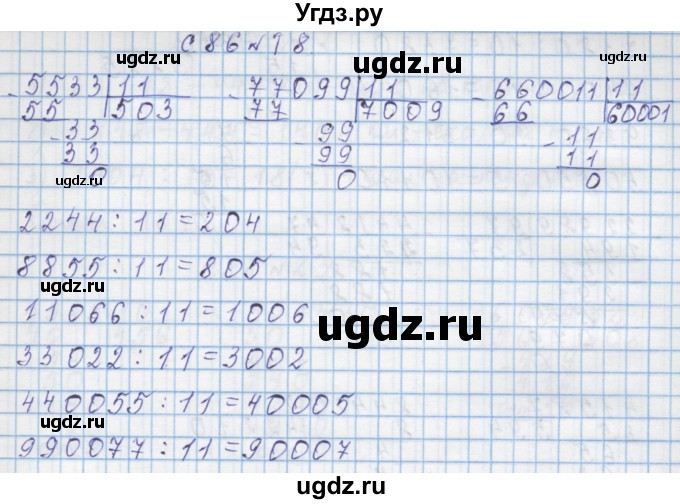 Угдз.ру
с 86 № 18.
ugdz.ru ugdz.ru
- 5533 | 11 - 77099 | 11 - 660011 | 11
55 503 77 7009 66 60001
- 33 - 99 - 11
33 99 11
0 0 0
ugdz.ru ugdz.ru
2244 : 11 = 204
ugdz.ru
8855 : 11 = 805
11066 : 11 = 1006
ugdz.ru
33022 : 11 = 3002
440055 : 11 = 40005
ugdz.ru
990077 : 11 = 90007
ugdz.ru
Угдз.ру